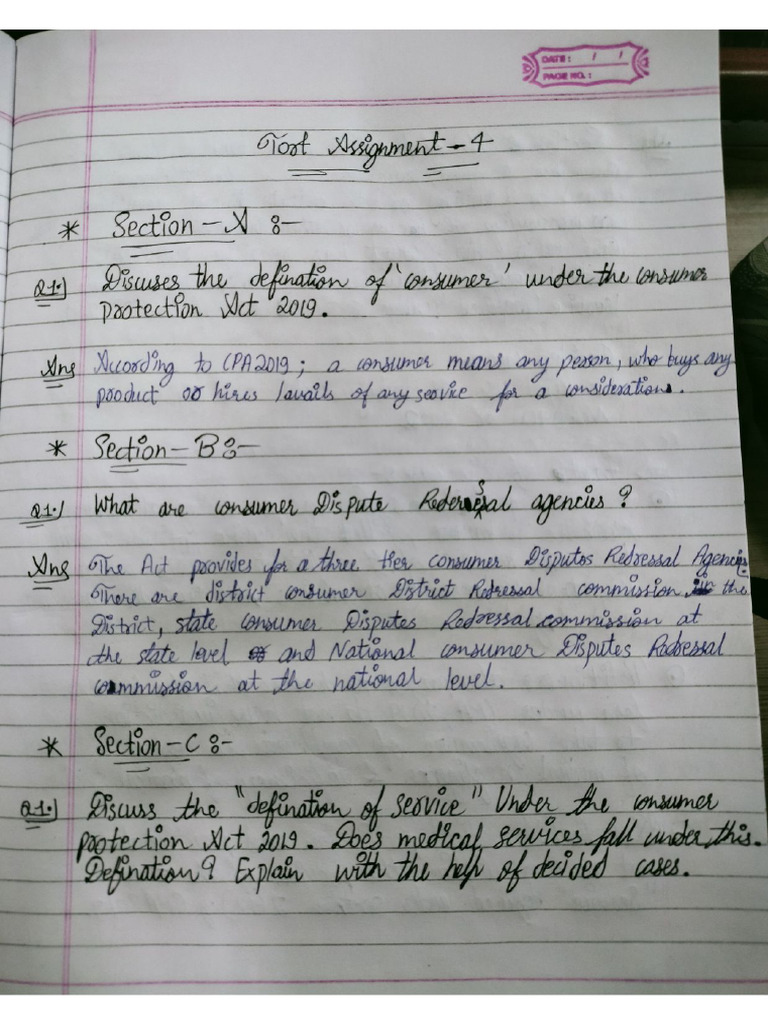 DATE: / /
PAGE NO.:
Tort Assignment - 4
* Section - A :-
Q1.) Discuses the defination of 'consumer' under the consumer
protection Act 2019.
Ans According to CPA2019; a consumer means any person, who buys any
product or hires /avails of any service for a consideration.
* Section - B :-
Q1./ What are consumer Dispute Redersal agencies?
Ans The Act provides for a three tier consumer Disputes Redressal Agencies
There are district consumer District Redressal commission, in the
District, state consumer Disputes Redressal commission at
the state level and National consumer Disputes Redressal
commission at the national level.
* Section - C :-
Q1.) Discuss the "defination of service" Under the consumer
protection Act 2019. Does medical services fall under this.
Defination? Explain with the help of decided cases.